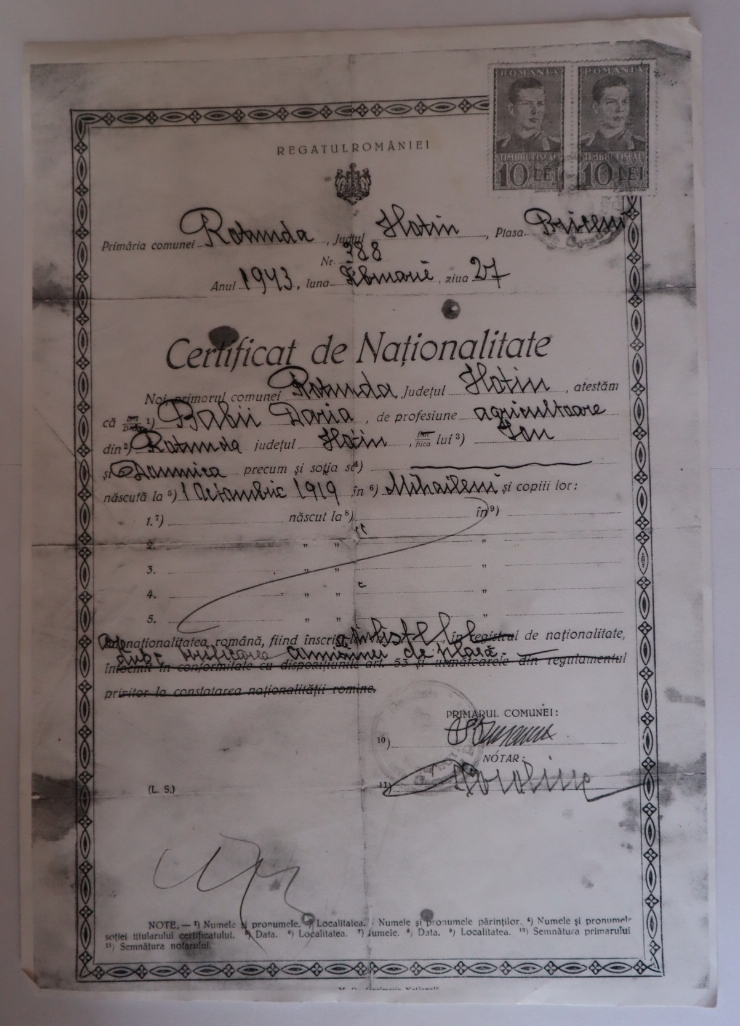 ROMANIA ROMANIA
TIMBRU FISCAL TIMBRU FISCAL
10 LEI 10 LEI
REGATUL ROMÂNIEI
Primăria comunei Rotunda, Județul Hotin, Plasa Briceni
Nr. 388
Anul 1943, luna Februarie, ziua 27
Certificat de Naționalitate
Noi primarul comunei Rotunda Județul Hotin, atestăm
că 1) Babii Daria, de profesiune agricultoare
din 2) Rotunda județul Hotin, lui 3) Ion
și Domnica precum și soția sa 4)
născută la 5) 1 Octombrie 1919 în 6) Mihaileni și copiii lor:
1. 7) născut la 8) în 9)
2. " " "
3. " " "
4. " " "
5. " " "
naționalitatea română, fiind în registrul de naționalitate,
comisiunei de plasă.
întocmit în conformitate cu dispozițiunile art. 53 și următoarele din regulamentul
privitor la constatarea naționalității romîne.
PRIMARUL COMUNEI:
10)
NOTAR:
(L. S.) 11)
NOTE. — 1) Numele și pronumele. 2) Localitatea. Numele și pronumele părinților. 4) Numele și pronumele
soției titularului certificatului. 5) Data. 6) Localitatea. 7) Numele. 8) Data. 9) Localitatea. 10) Semnătura primarului
11) Semnătura notarului.